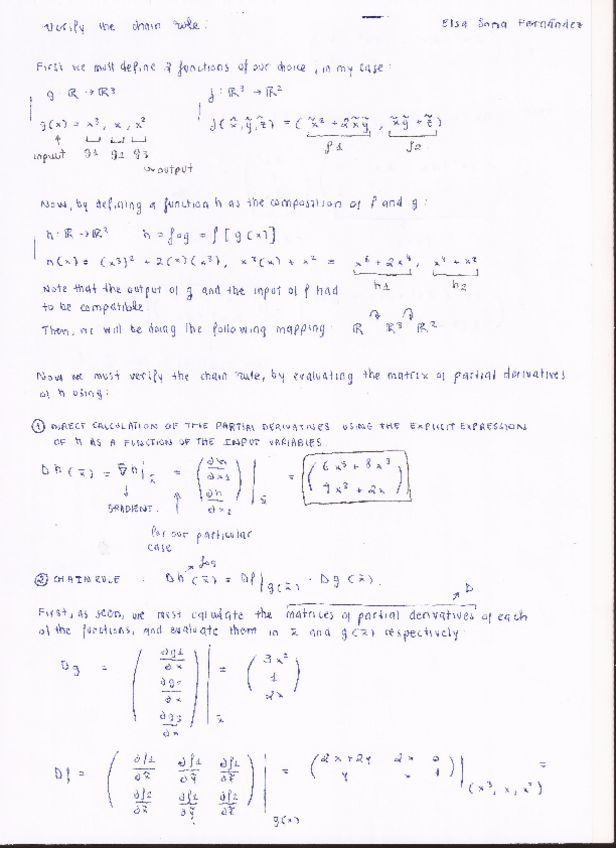 Verify the chain rule:
Elsa Soria Fernández
First we must define 2 functions of our choice, in my case:
g: ℝ → ℝ³
f: ℝ³ → ℝ²
g(x) = x³, x, x²
f(x̃, ỹ, z̃) = (x̃² + 2x̃ỹ, x̃ỹ + z̃)
input g1 g2 g3
f1 f2
output
Now, by defining a function h as the composition of f and g:
h: ℝ → ℝ² h = fog = f[g(x)]
h(x) = (x³)² + 2(x)(x³), x³(x) + x² = x⁶ + 2x⁴, x⁴ + x²
h1 h2
Note that the output of g and the input of f had
to be compatible.
Then, we will be doing the following mapping: ℝ ℝ³ ℝ²
Now we must verify the chain rule, by evaluating the matrix of partial derivatives
of h using:
① DIRECT CALCULATION OF THE PARTIAL DERIVATIVES USING THE EXPLICIT EXPRESSION
OF h AS A FUNCTION OF THE INPUT VARIABLES.
6x⁵ + 8x³
4x³ + 2x
GRADIENT.
for our particular
case
fog
② CHAIN RULE. Dh(x̄) = Df|g(x̄) · Dg(x̄).
D
First, as seen, we must calculate the matrices of partial derivatives of each
of the functions, and evaluate them in x̄ and g(x̄) respectively:
Dg = (∂g1/∂x ∂g2/∂x ∂g3/∂x)|x̄ = (3x² 1 2x)
Df = (∂f1/∂x̃ ∂f1/∂ỹ ∂f1/∂z̃
∂f2/∂x̃ ∂f2/∂ỹ ∂f2/∂z̃)|g(x) = (2x+2y 2x 0
y x 1)|(x³, x, x²) =